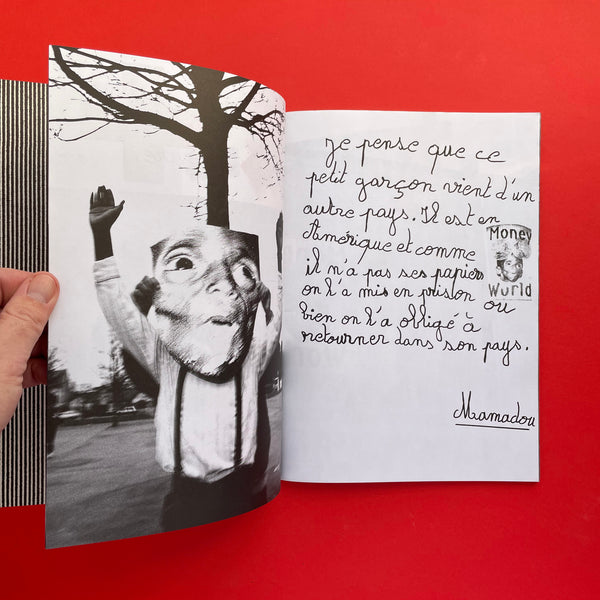 Je pense que ce
petit garçon vient d'un
autre pays. Il est en
Amérique et comme
il n'a pas ses papiers
on l'a mis en prison ou
bien on l'a obligé à
retourner dans son pays.
Money
World
Mamadou